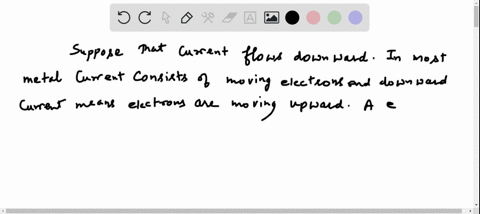 Suppose that current flows downward. In most
metal current consists of moving electrons and downward
current means electrons are moving upward. A e